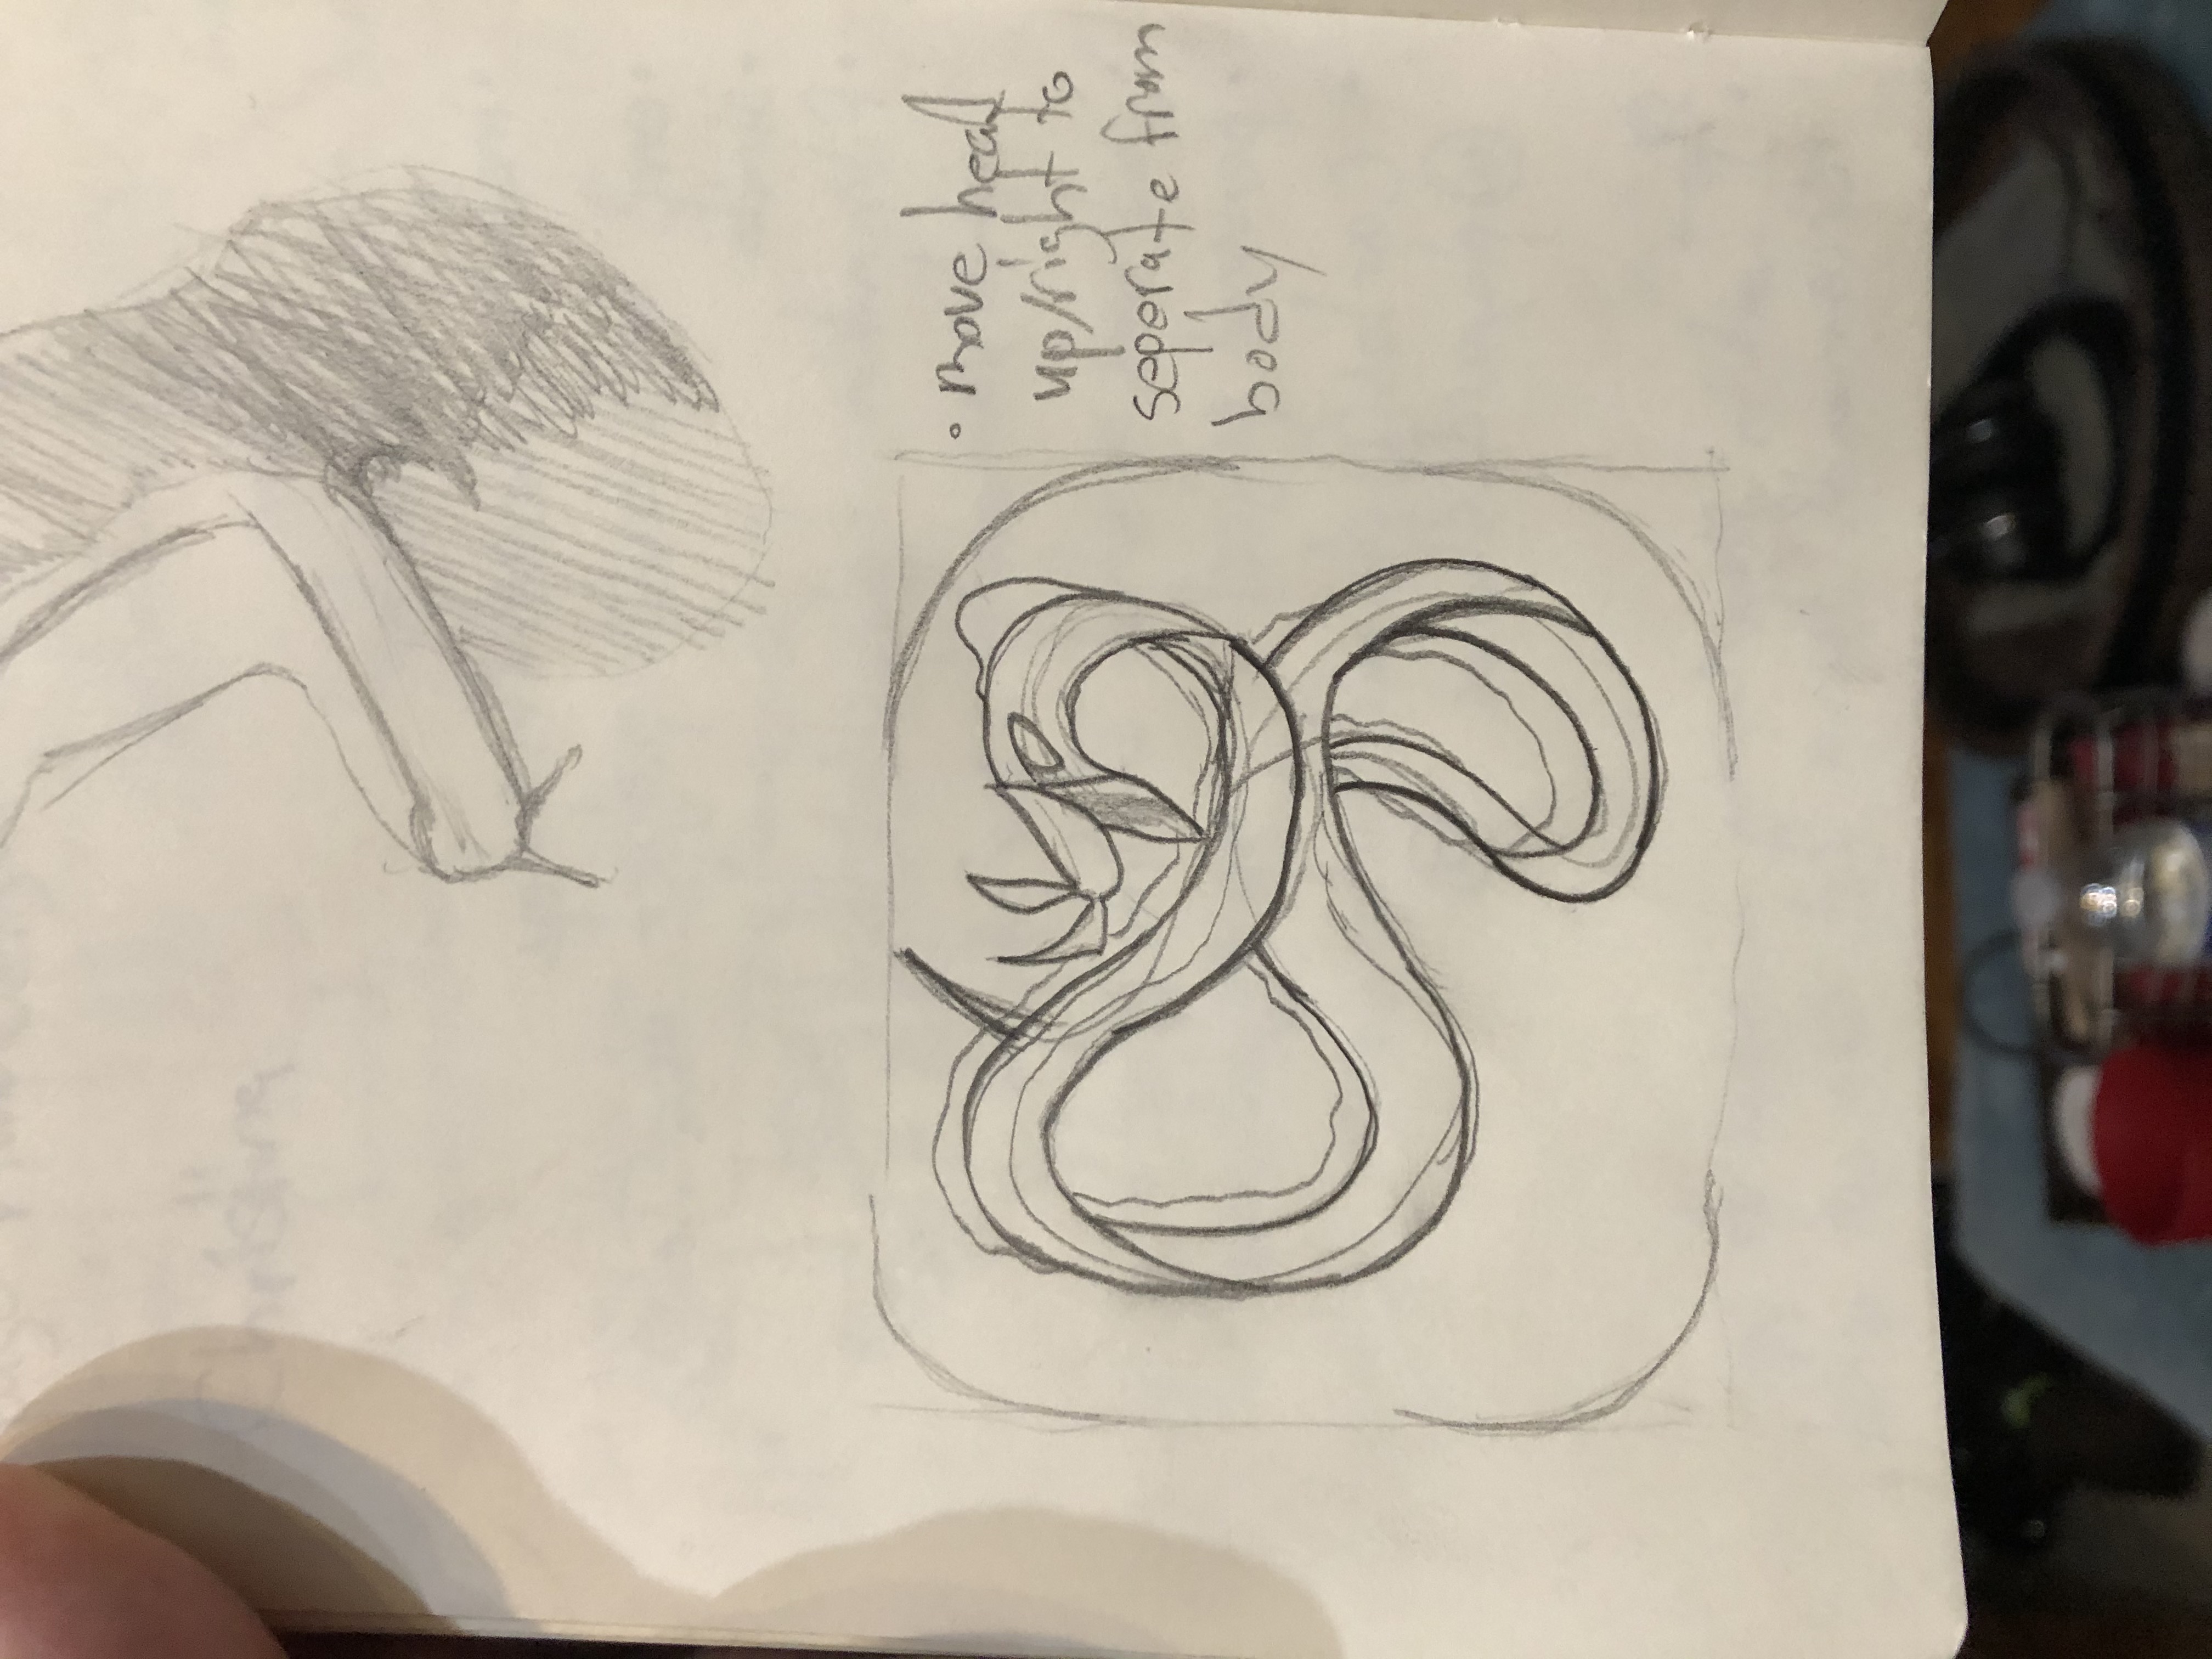 • move head
up/right to
seperate from
body